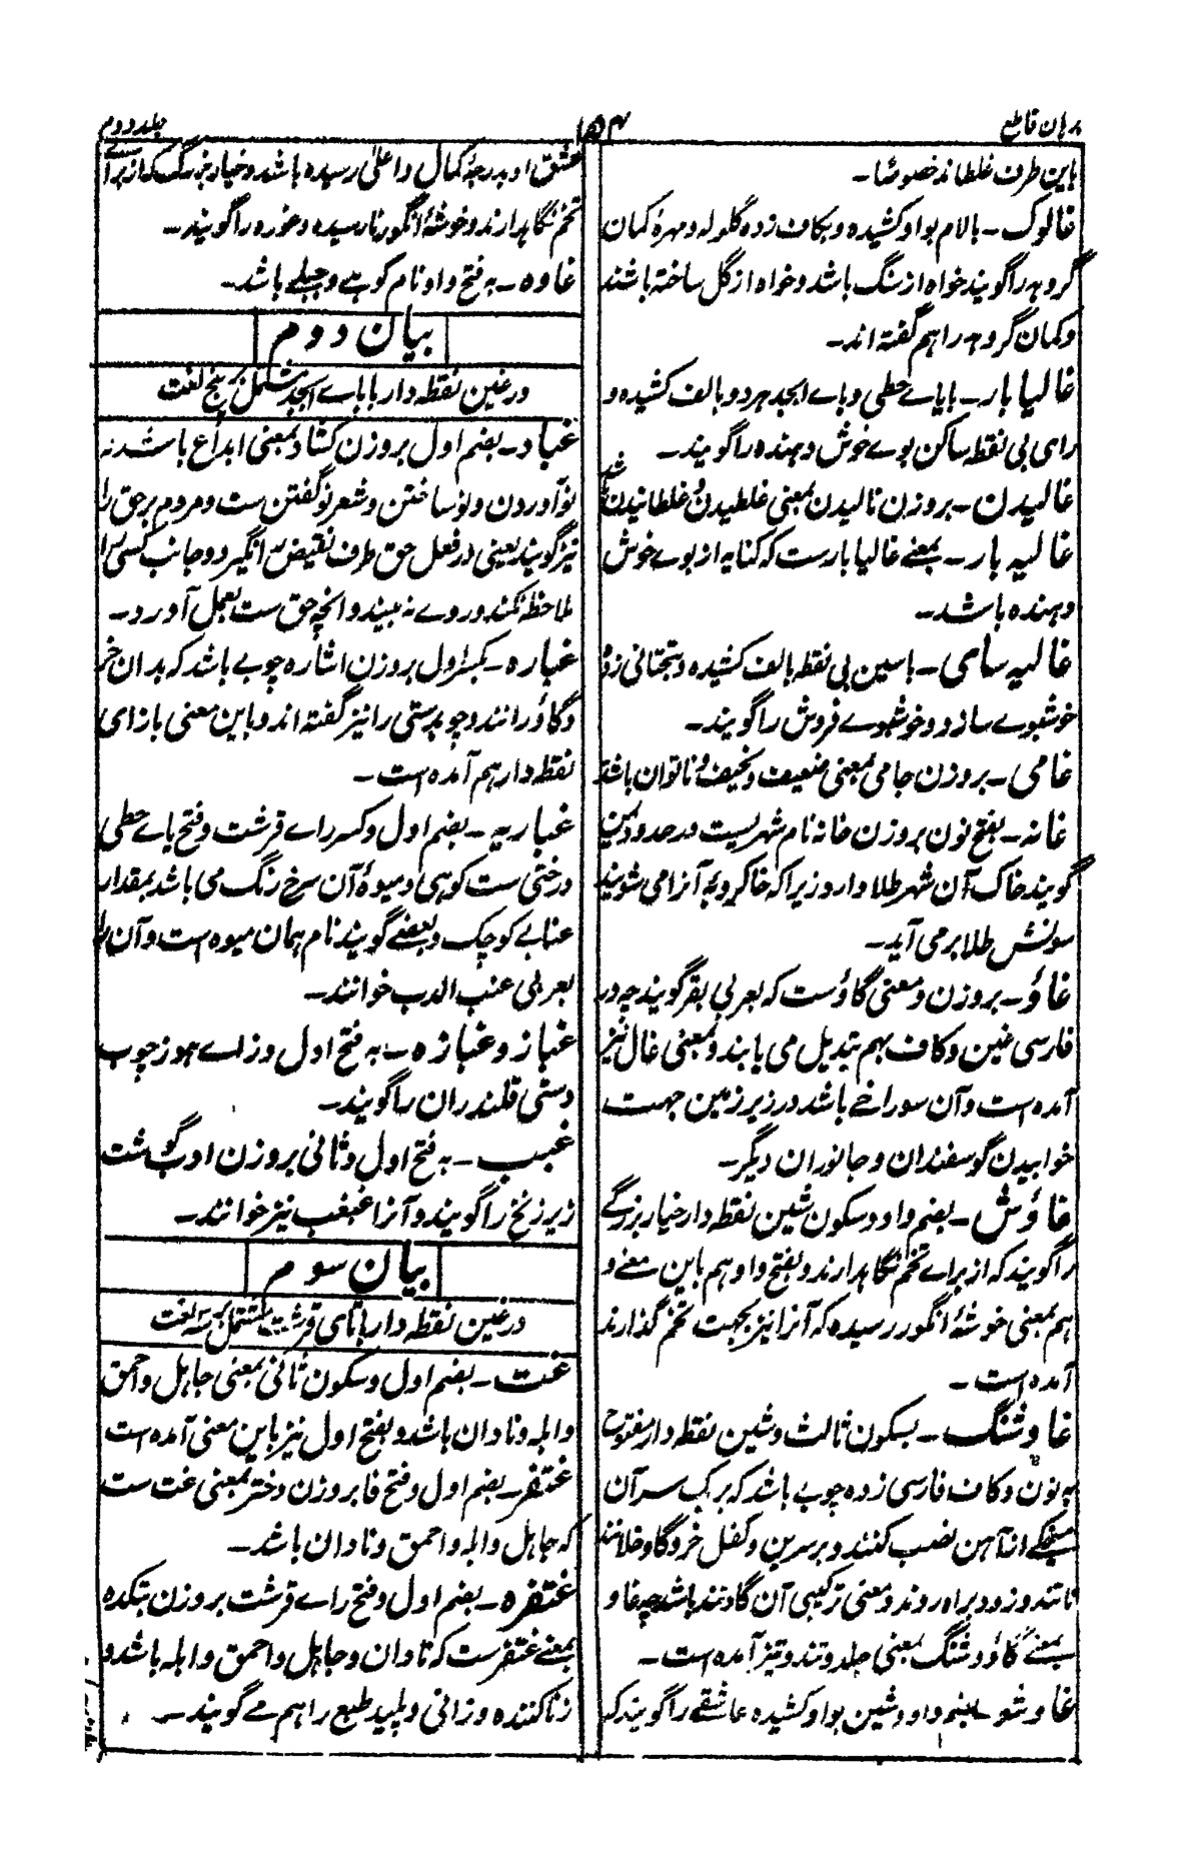 برہان قاطع
۱۵۴
جلد دوم
باین طرف غلطاند خصوصًا۔
غالوک۔ بالام بواو کشیدہ و بکاف زدہ گلولہ و مہرۂ کمان
گروہہ را گویند خواہ از سنگ باشد و خواہ از گل ساختہ باشند
و کمان گروہہ را ہم گفتہ اند۔
غالیا بار۔ بایاے حطی و باے ابجد ہر دو بالف کشیدہ و
رای بی نقطہ ساکن بوے خوش دہندہ را گویند۔
غالیدن۔ بروزن نالیدن بمعنی غلطیدن و غلطانیدن باشد
غالیہ بار۔ بمعنے غالیا بارست کہ کنایہ از بوے خوش
دہندہ باشد۔
غالیہ سای۔ باسین بی نقطہ بالف کشیدہ و بتحتانی زدہ
خوشبوے ساز و خوشبوے فروش را گویند۔
غامی۔ بروزن جامی بمعنی ضعیف و نحیف و ناتوان باشد
غانہ۔ بفتح نون بروزن خانہ نام شہریست در حدود یمن
گویند خاک آن شہر طلا دارد زیرا کہ خاکروبہ آنرا می شویند
سونش طلا بر می آید۔
غاؤ۔ بروزن و معنی گاؤست کہ بعربی بقر گویند چہ در
فارسی غین و کاف بہم تبدیل می یابند و بمعنی غال نیز
آمدہ است و آن سوراخے باشد در زیر زمین جہت
خوابیدن گوسفندان و جانوران دیگر۔
غاؤش۔ بضم واو و سکون شین نقطہ دار خیار بزرگے
را گویند کہ از براے تخم نگاہدارند و بفتح واو ہم باین معنے و
ہم بمعنی خوشۂ انگور رسیدہ کہ آنرا نیز بجہت تخم گذارند
آمدہ است۔
غاوشنگ۔ بسکون ثالث و شین نقطہ دار مفتوح
بہ نون و کاف فارسی زدہ چوبے باشد کہ بر یک سر آن
میخکے از آہن نصب کنند و بر سرین و کفل خر و گاو خلانند
تا تند و زود براہ روند و معنی ترکیبی آن گاو تند باشد چہ غاو
بمعنے گاؤ و شنگ بمعنی جلد و تند و تیز آمدہ است۔
غاوشو۔ بضم واو و شین بواو کشیدہ عاشقے را گویند کہ
عشق او بدرجۂ کمال و اعلیٰ رسیدہ باشد و خیار بزرگ کہ از براے
تخم نگاہدارند و خوشۂ انگور نارسیدہ و غورہ را گویند۔
غاوہ۔ بہ فتح واو نام کوہے و جبلے باشد۔
بیان دوم
در غین نقطہ دار با باے ابجد مشتمل بر پنج لغت
غباد۔ بضم اول بروزن کشاد بمعنی ابداع باشد نہ
نو آوردن و نو ساختن و شعر نو گفتن ست و مردم بر حق را
نیز گویند یعنی در فعل حق طرف نقیض را نگیرد و جانب کسی را
ملاحظہ نکند و روے نہ بیند و انچہ حق ست بعمل آورد۔
غبارہ۔ بکسر اول بروزن اشارہ چوبے باشد کہ بدان خر
و گاؤ رانند و چوبدستی را نیز گفتہ اند و باین معنی با زای
نقطہ دار ہم آمدہ است۔
غباریہ۔ بضم اول و کسر راے قرشت و فتح یاے حطی
درختی ست کوہی و میوۂ آن سرخ رنگ می باشد بمقدار
عنابے کوچک و بعضے گویند نام ہمان میوہ است و آن را
بعربی عنب الدب خوانند۔
غباز و غبازہ۔ بہ فتح اول و زاے ہوز چوب
دستی قلندران را گویند۔
غبب۔ بہ فتح اول و ثانی بروزن ادب گوشت
زیر زنخ را گویند و آنرا غبغب نیز خوانند۔
بیان سوم
در غین نقطہ دار با تای قرشت مشتمل بر سہ لغت
غت۔ بضم اول و سکون ثانی بمعنی جاہل و احمق
و ابلہ و نادان باشد و بفتح اول نیز باین معنی آمدہ است
غتفر۔ بضم اول و فتح فا بروزن دختر بمعنی غت ست
کہ جاہل و ابلہ و احمق و نادان باشد۔
غتفرہ۔ بضم اول و فتح راے قرشت بروزن بتکدہ
بمعنے غتفرست کہ نادان و جاہل و احمق و ابلہ باشد و
زنا کنندہ و زانی و پلید طبع را ہم مے گویند۔